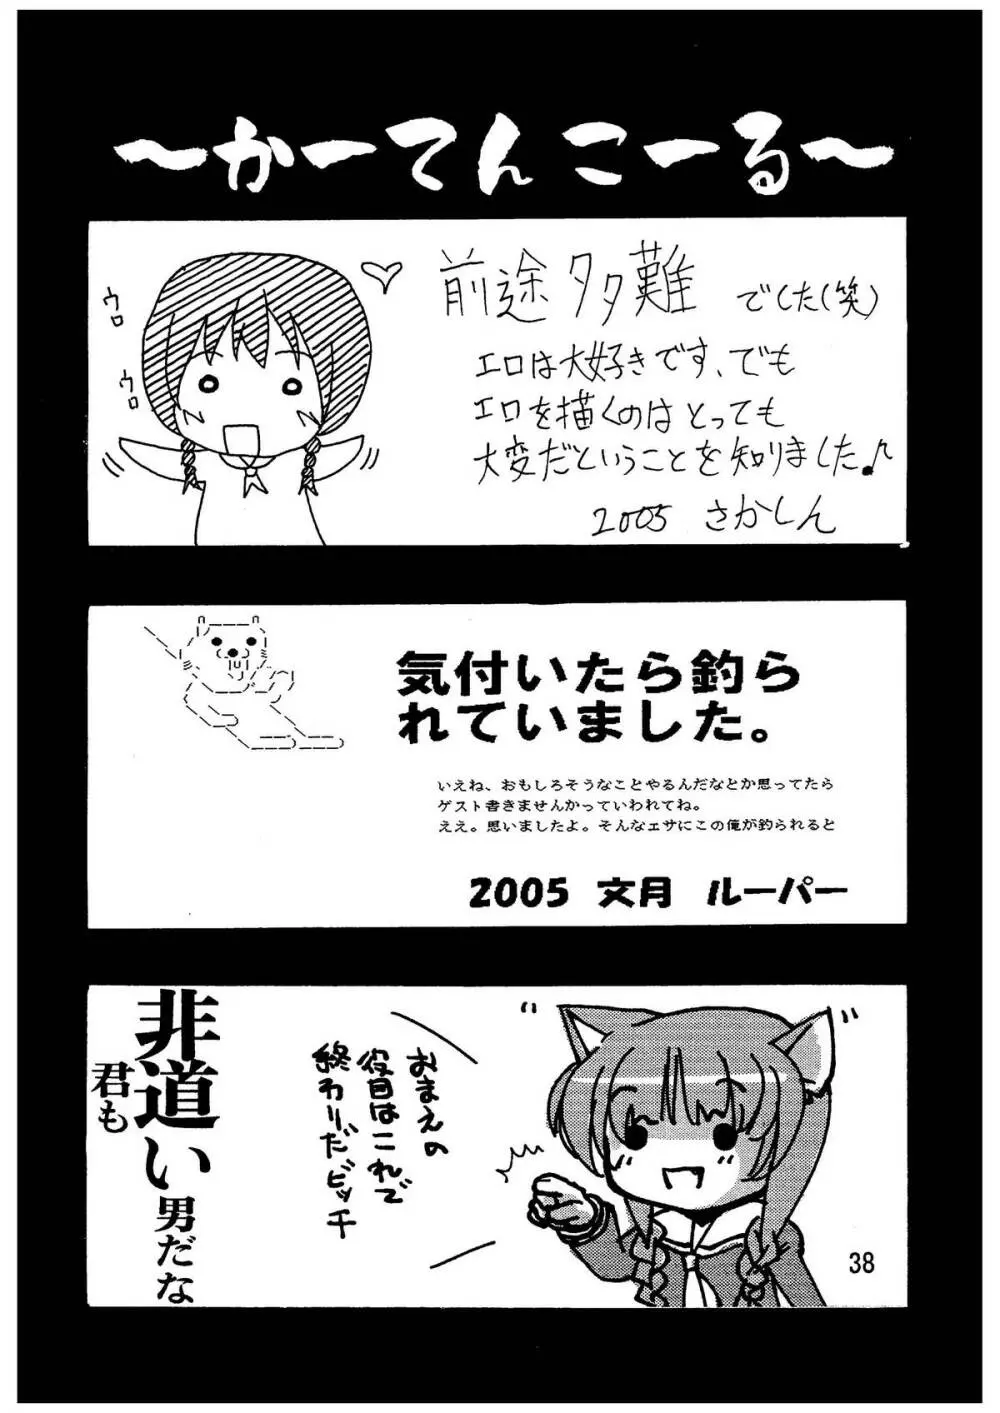 ～かーてんこーる～
前途多難でした(笑)
エロは大好きです、でも
エロを描くのはとっても
大変だということを知りました♪
2005 さかしん
ウロ
ウロ
気付いたら釣ら
れていました。
いえね、おもしろそうなことやるんだなとか思ってたら
ゲスト書きませんかっていわれてね。
ええ。思いましたよ。そんなエサにこの俺が釣られると
2005 文月 ルーパー
おまえの
役目はこれで
終わりだビッチ
君も
非道い男だな
38